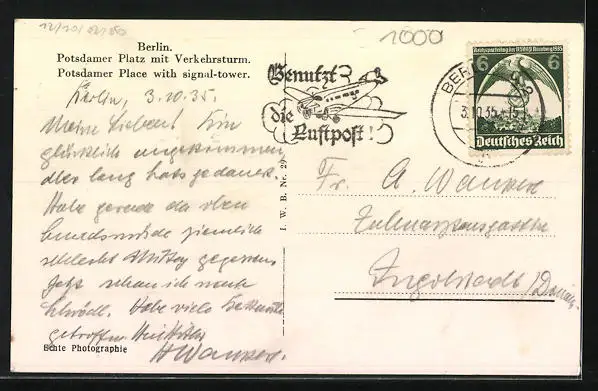 12/10/02/060
1000
Berlin.
Potsdamer Platz mit Verkehrsturm.
Potsdamer Place with signal-tower.
Berlin, 3.10.35.
Meine Lieben! Bin
glücklich angekommen
aber lang hats gedauert.
Habe gerade da oben
ziemlich
schlecht Mittag gegessen
Jetzt schau ich nach
Habe viele Bekannte
getroffen.
HWanker.
Echte Photographie
I. W. B. Nr. 29
Benutzt
die
Luftpost!
BERLIN
3.10.35
Reichsparteitag der NSDAP Nürnberg 1935
6 6
Deutsches Reich
Fr. A. Wanker
Ingolstadt/Donau.